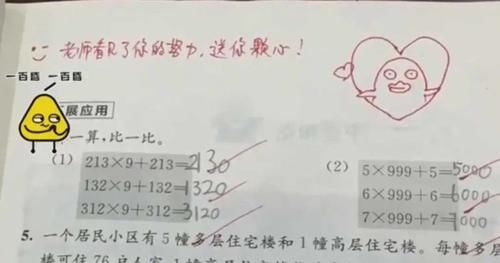 老师看见了你的努力,送你颗心!
一百昏 一百昏
展应用
一算,比一比。
(1) 213×9+213=2130
132×9+132=1320
312×9+312=3120
(2) 5×999+5=5000
6×999+6=6000
7×999+7=7000
5. 一个居民小区有5幢多层住宅楼和1幢高层住宅楼。每幢多
楼可住76户人家